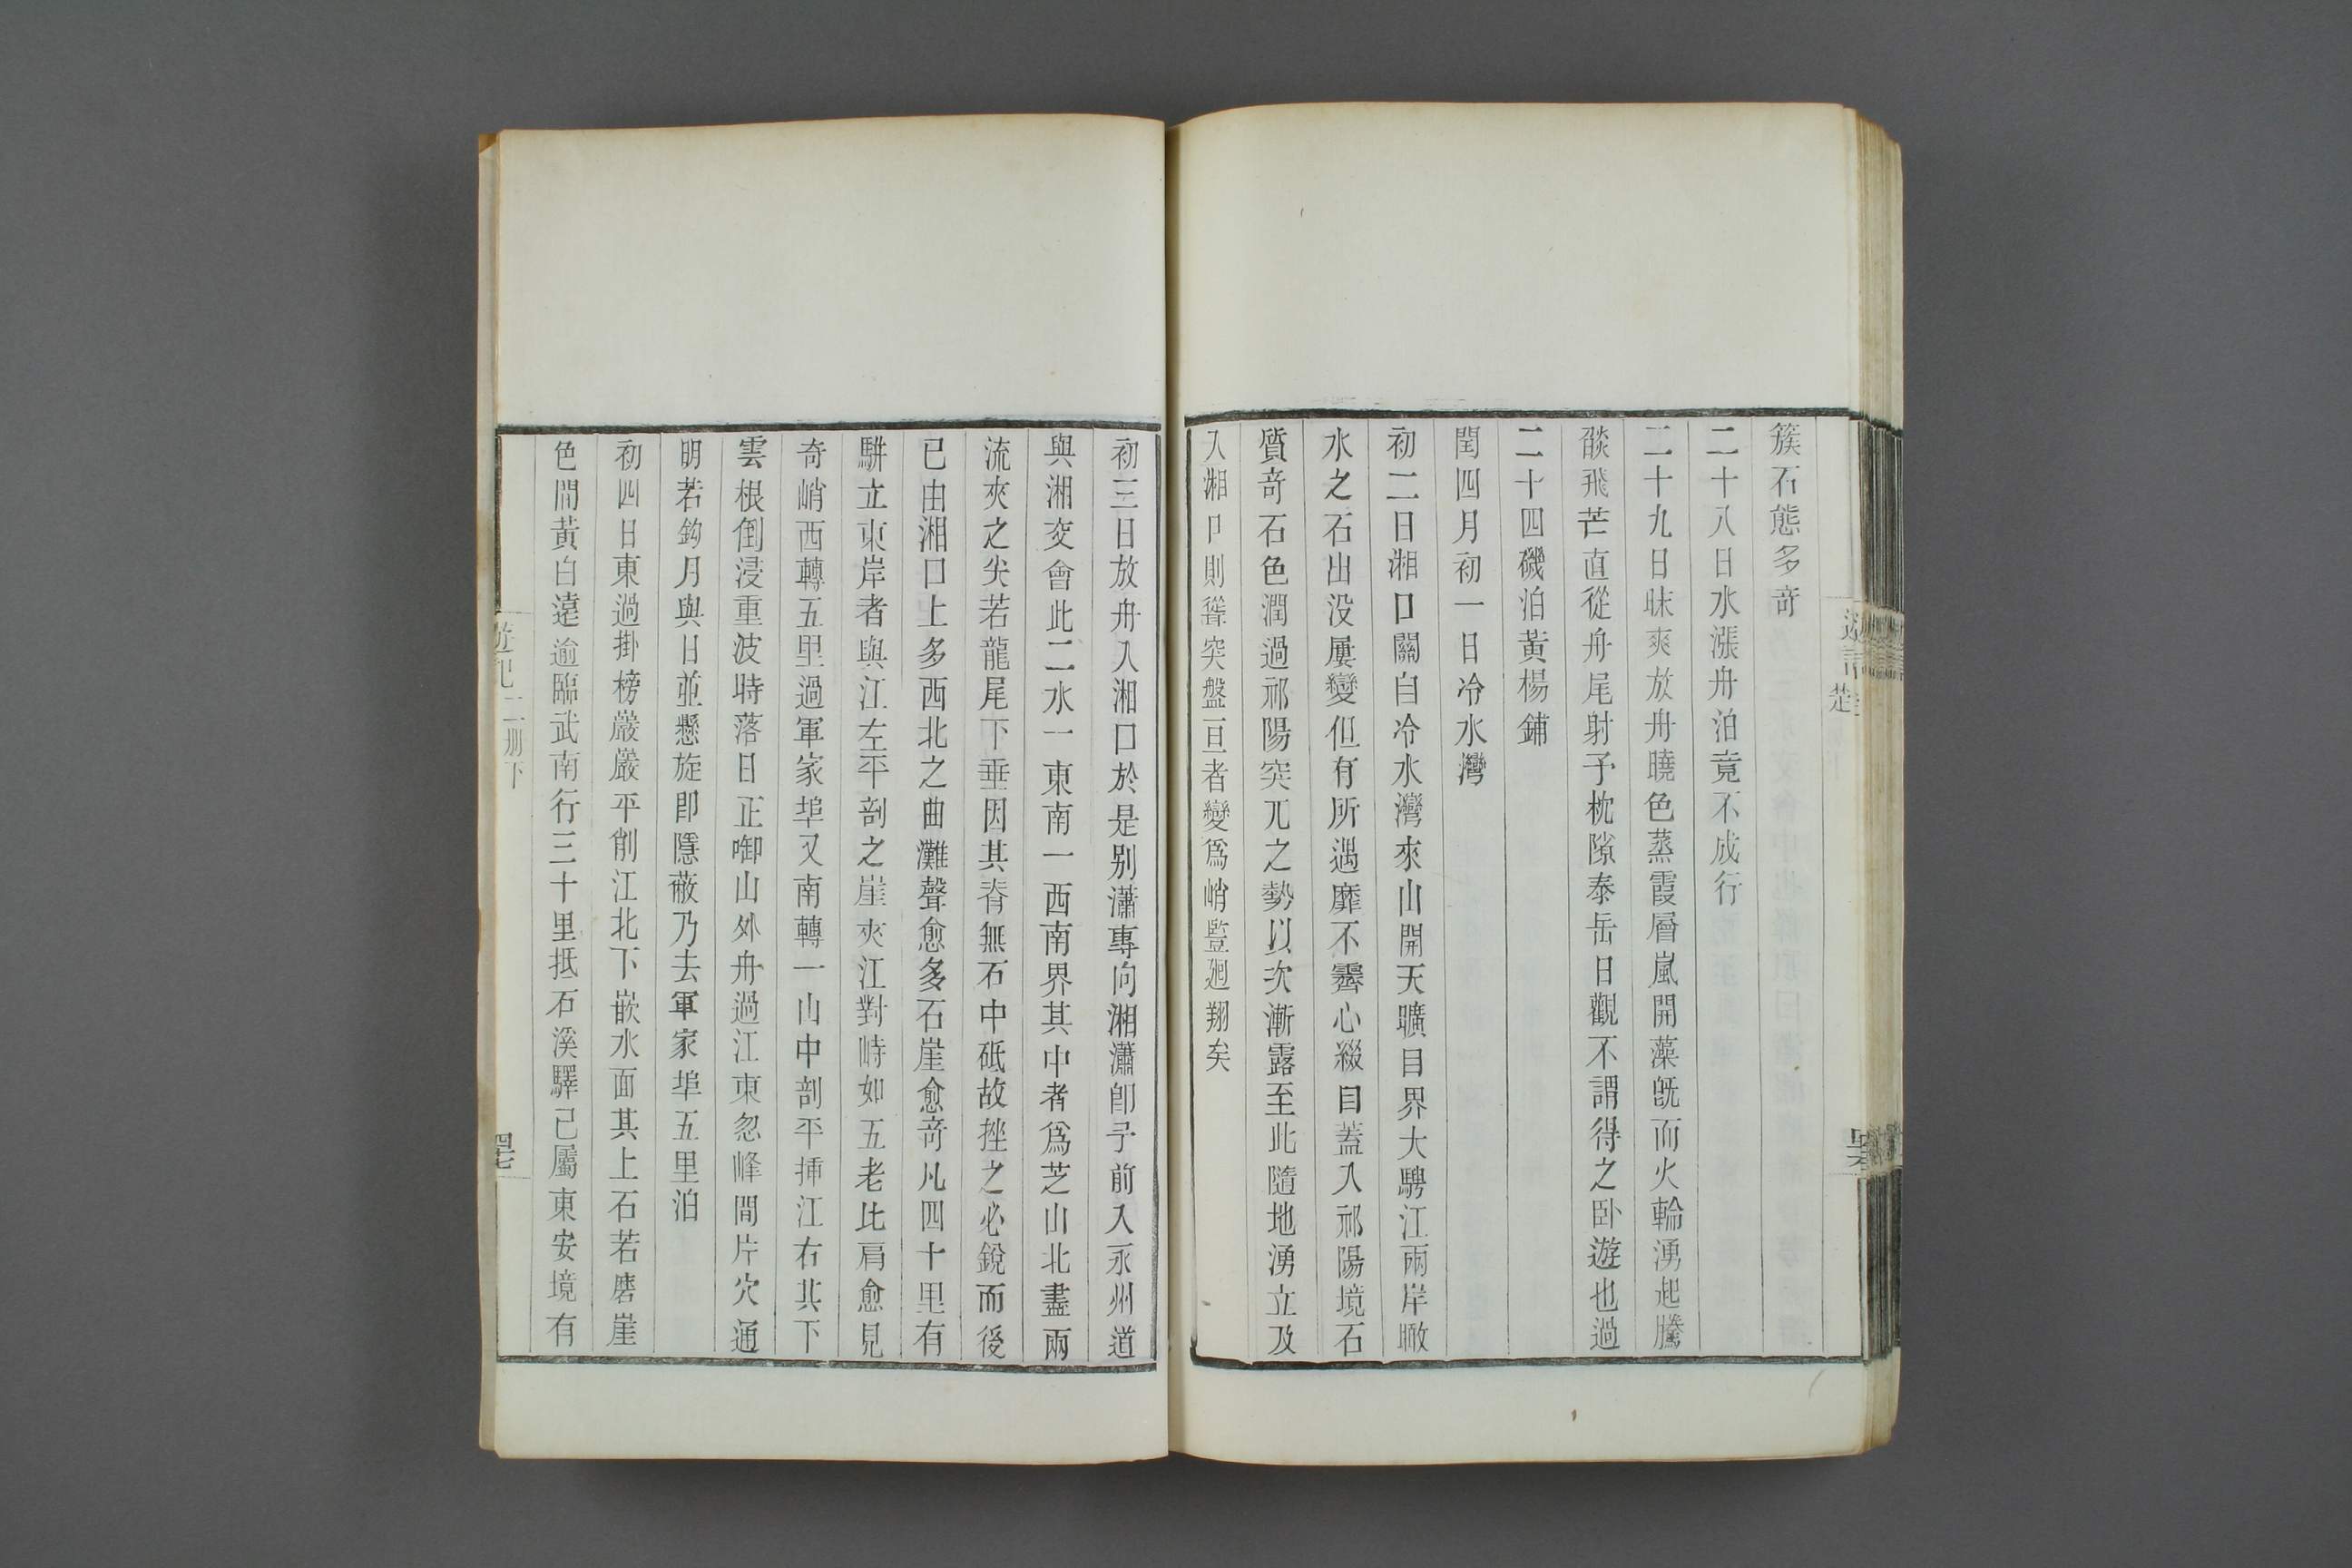 簇石態多奇
二十八日水漲舟泊竟不成行
二十九日昧爽放舟曉色蒸霞層嵐開藻旣而火輪湧起騰
燄飛芒直從舟尾射予枕隙泰岳日觀不謂得之卧遊也過
二十四磯泊黃楊鋪
閏四月初一日冷水灣
初二日湘口關自冷水灣來山開天曠目界大騁江兩岸瞰
水之石出没屢變但有所遇靡不霽心綴目蓋入祁陽境石
質奇石色潤過祁陽突兀之勢以次漸露至此隨地湧立及
入湘口則聳突盤亘者變爲峭豎廻翔矣
初三日放舟入湘口於是别瀟專向湘瀟卽予前入永州道
與湘交會此二水一東南一西南界其中者爲芝山北盡兩
流夾之尖若龍尾下垂因其脊無石中砥故挫之必銳而後
已由湘口上多西北之曲灘聲愈多石崖愈奇凡四十里有
駢立東岸者與江左平剖之崖夾江對峙如五老比肩愈見
奇峭西轉五里過軍家埠又南轉一山中剖平揷江右其下
雲根倒浸重波時落日正啣山外舟過江東忽峰間片穴通
明若鈎月與日並懸旋卽隱蔽乃去軍家埠五里泊
初四日東過掛榜巖巖平削江北下嵌水面其上石若磨崖
色間黃白遠逾臨武南行三十里抵石溪驛已屬東安境有
遊記二册下